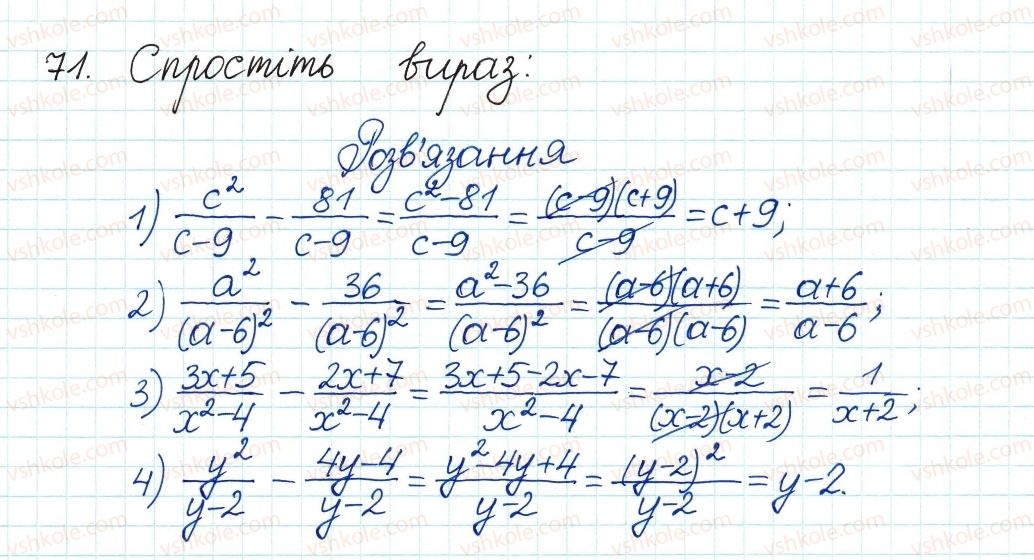 71. Спростіть вираз:
Розв'язання
1) c²/(c-9) - 81/(c-9) = (c²-81)/(c-9) = (c-9)(c+9)/(c-9) = c+9;
2) a²/(a-6)² - 36/(a-6)² = (a²-36)/(a-6)² = (a-6)(a+6)/(a-6)(a-6) = (a+6)/(a-6);
3) (3x+5)/(x²-4) - (2x+7)/(x²-4) = (3x+5-2x-7)/(x²-4) = (x-2)/(x-2)(x+2) = 1/(x+2);
4) y²/(y-2) - (4y-4)/(y-2) = (y²-4y+4)/(y-2) = (y-2)²/(y-2) = y-2.